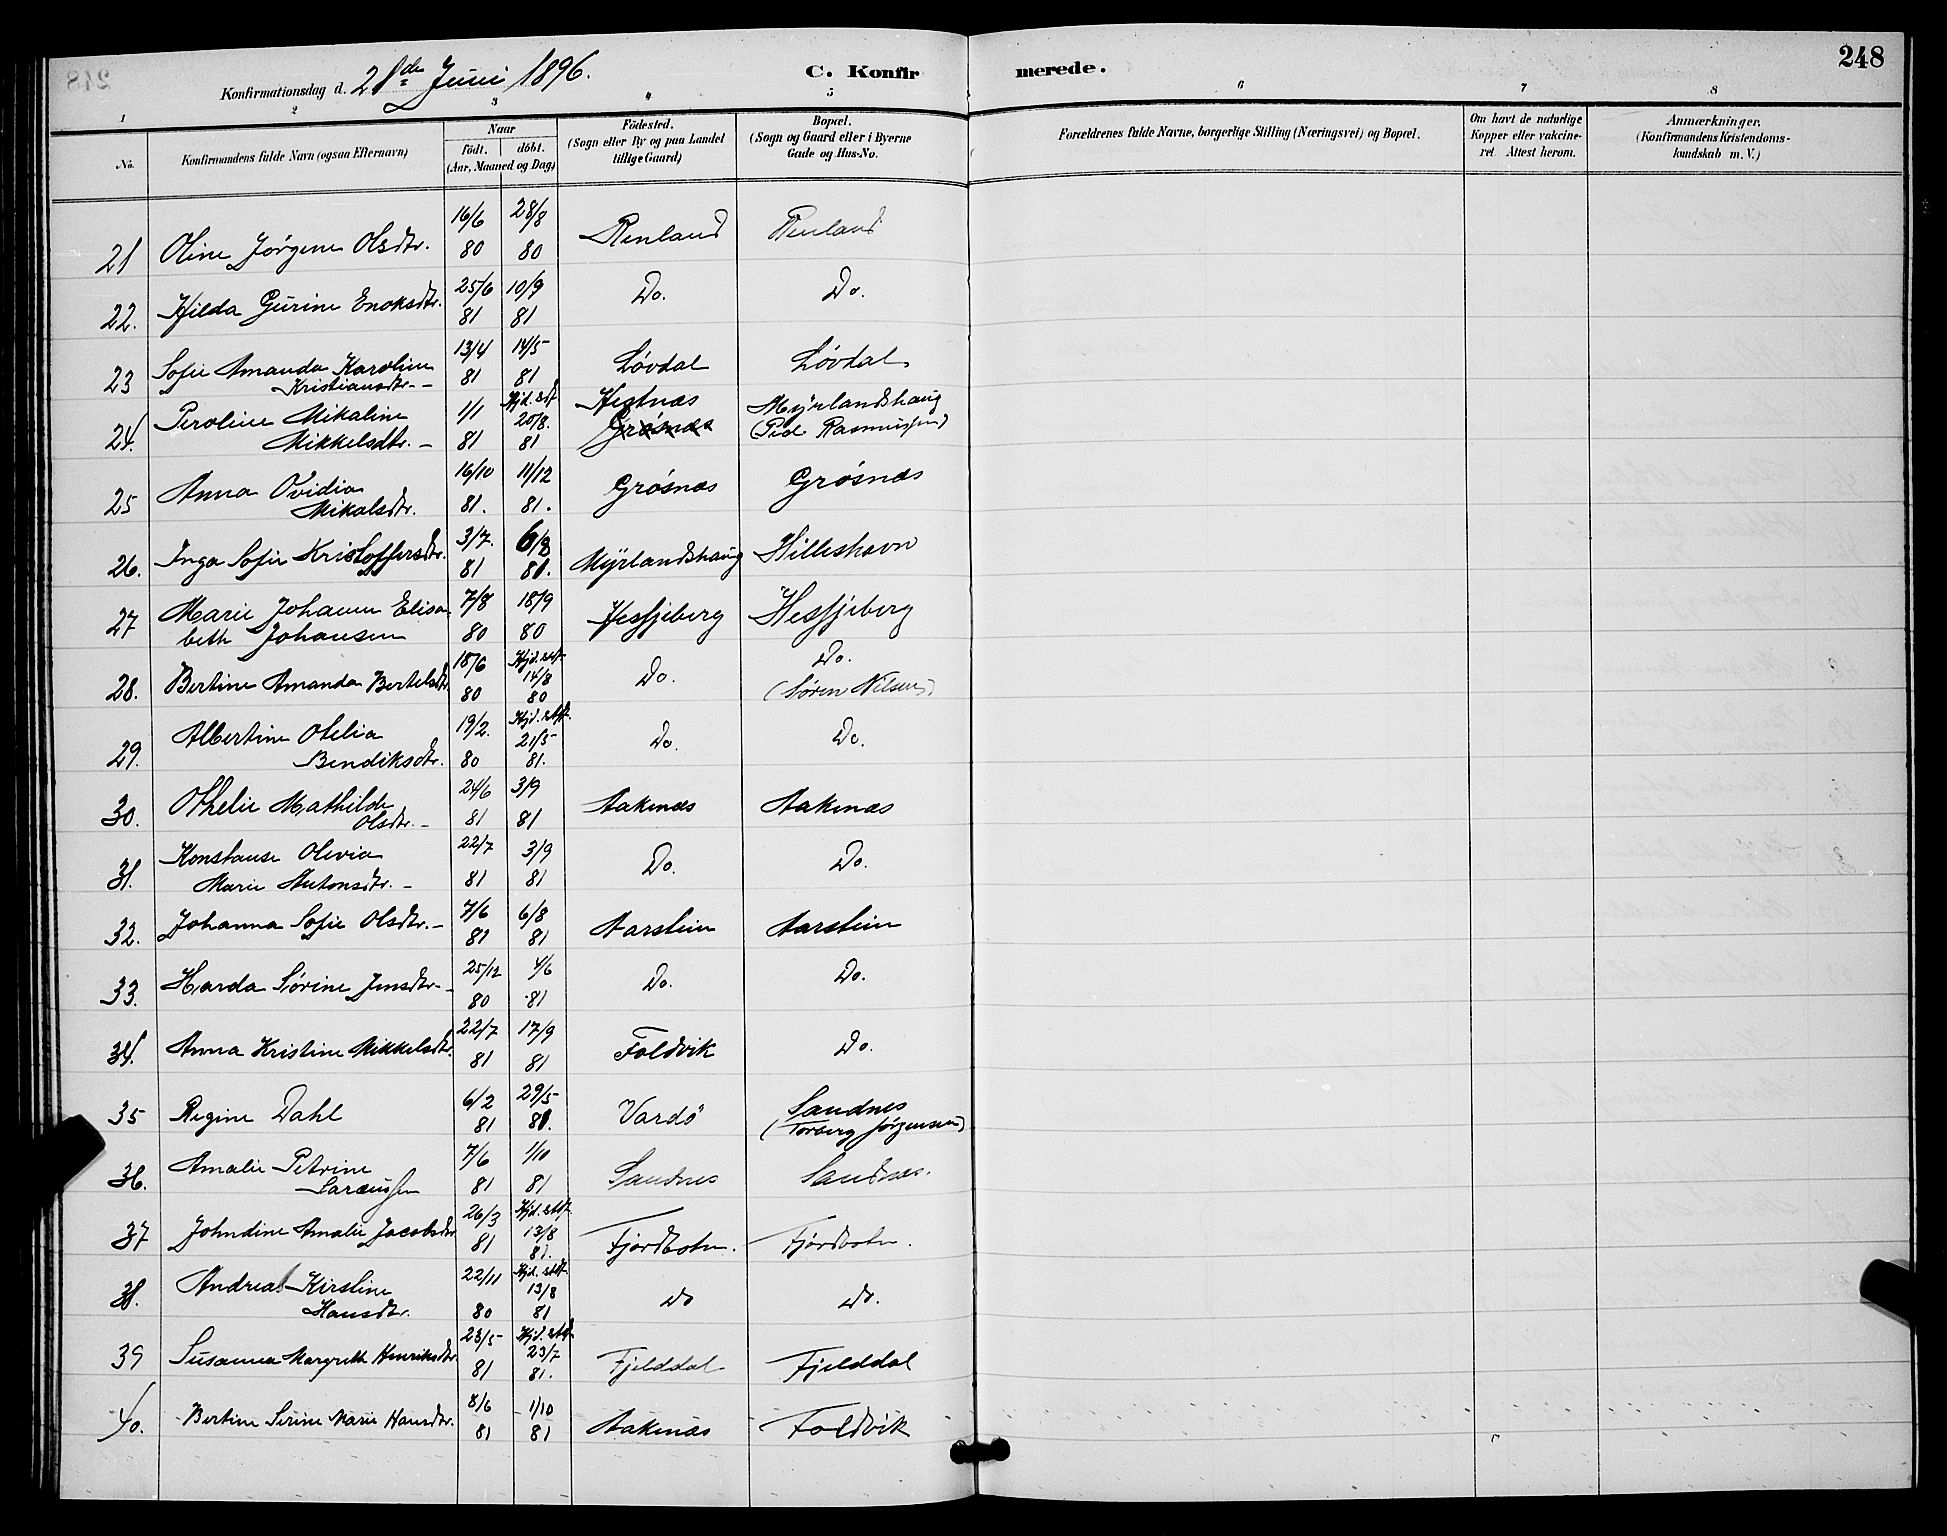 248
Konfirmationsdag d. 21de Juni 1896.
C. Konfirmerede.
1 2 3 4 5 6 7 8
No.
Konfirmandens fulde Navn (ogsaa Efternavn)
Naar
födt. döbt.
(Aar, Maaned og Dag)
Födested.
(Sogn eller By og paa Landet
tillige Gaard)
Bopæl.
(Sogn og Gaard eller i Byerne
Gade og Hus-No.
Forældrenes fulde Navne, borgerlige Stilling (Næringsvei) og Bopæl.
Om havt de naturlige
Kopper eller vakcine-
ret. Attest herom.
Anmærkninger.
(Konfirmandens Kristendoms-
kundskab m. V.)
21 Oline Jørgine Olsdtr. 16/6 80 28/8 80 Renland Renland
22. Hilda Gurine Enoksdtr. 25/6 81 10/9 81 Do. Do.
23 Sofie Amanda Karoline
Kristiansdtr. 13/4 81 14/5 81 Løvdal Løvdal
24. Peroline Mikaline
Mikkelsdtr. 1/1 81 Hjd. stf. 20/8. 81 Hestnæs Grøsnæs Myrlandshaug
(Peder Rasmussen)
25 Anna Ovidia
Mikalsdtr. 16/10 81. 11/12 81. Grøsnæs Grøsnæs
26. Inga Sofie Kristoffersdtr. 3/7. 81 6/8 81. Myrlandshaug Hilleshavn
27 Marie Johanne Elisa-
beth Johansen 7/8 80 18/9 80 Hesfjeberg Hesfjeberg
28. Bertine Amanda Bertelsdtr. 18/6 80 Hjd. stf. 14/8 80 Do. Do.
(Søren Nilsen)
29. Albertine Otelia
Bendiksdtr. 19/2. 80 Hjd. stf. 21/5 81. Do. Do.
30. Othelie Mathilde
Olsdtr. 24/6 81 3/9 81 Aakenæs Aakenæs
31. Konstanse Olevia
Marie Antonsdtr. 22/7 81 3/9 81 Do. Do.
32. Johanna Sofie Olsdtr. 7/6 81 6/8 81 Aarstein Aarstein
33. Harda Sørine Jensdtr. 25/12 80 4/6 81 Do. Do.
34. Anna Kristine Mikkelsdtr. 22/7 81 17/9 81 Foldvik Do.
35 Regine Dahl 6/2 81 29/5 81. Vardö Sandnes
(Torberg Jørgensen)
36. Amalie Petrine
Saræussen 7/6 81 1/10 81 Sandnes Sandnæs.
37 Johndine Amalie Jacobsdtr 26/3 81 Hjd. stf. 13/8 81. Fjordbotn. Fjordbotn.
38. Andrea Kirstine
Hansdtr. 22/11 80 Hjd. stf. 13/8 81 Do Do.
39 Susanna Margreth Henriksdtr 23/5 81 Hjd. stf. 23/7 81. Fjelddal Fjelddal
40. Bertine Serine Marie Hansdtr. 8/6 81 1/10 81 Aakenæs Foldvik